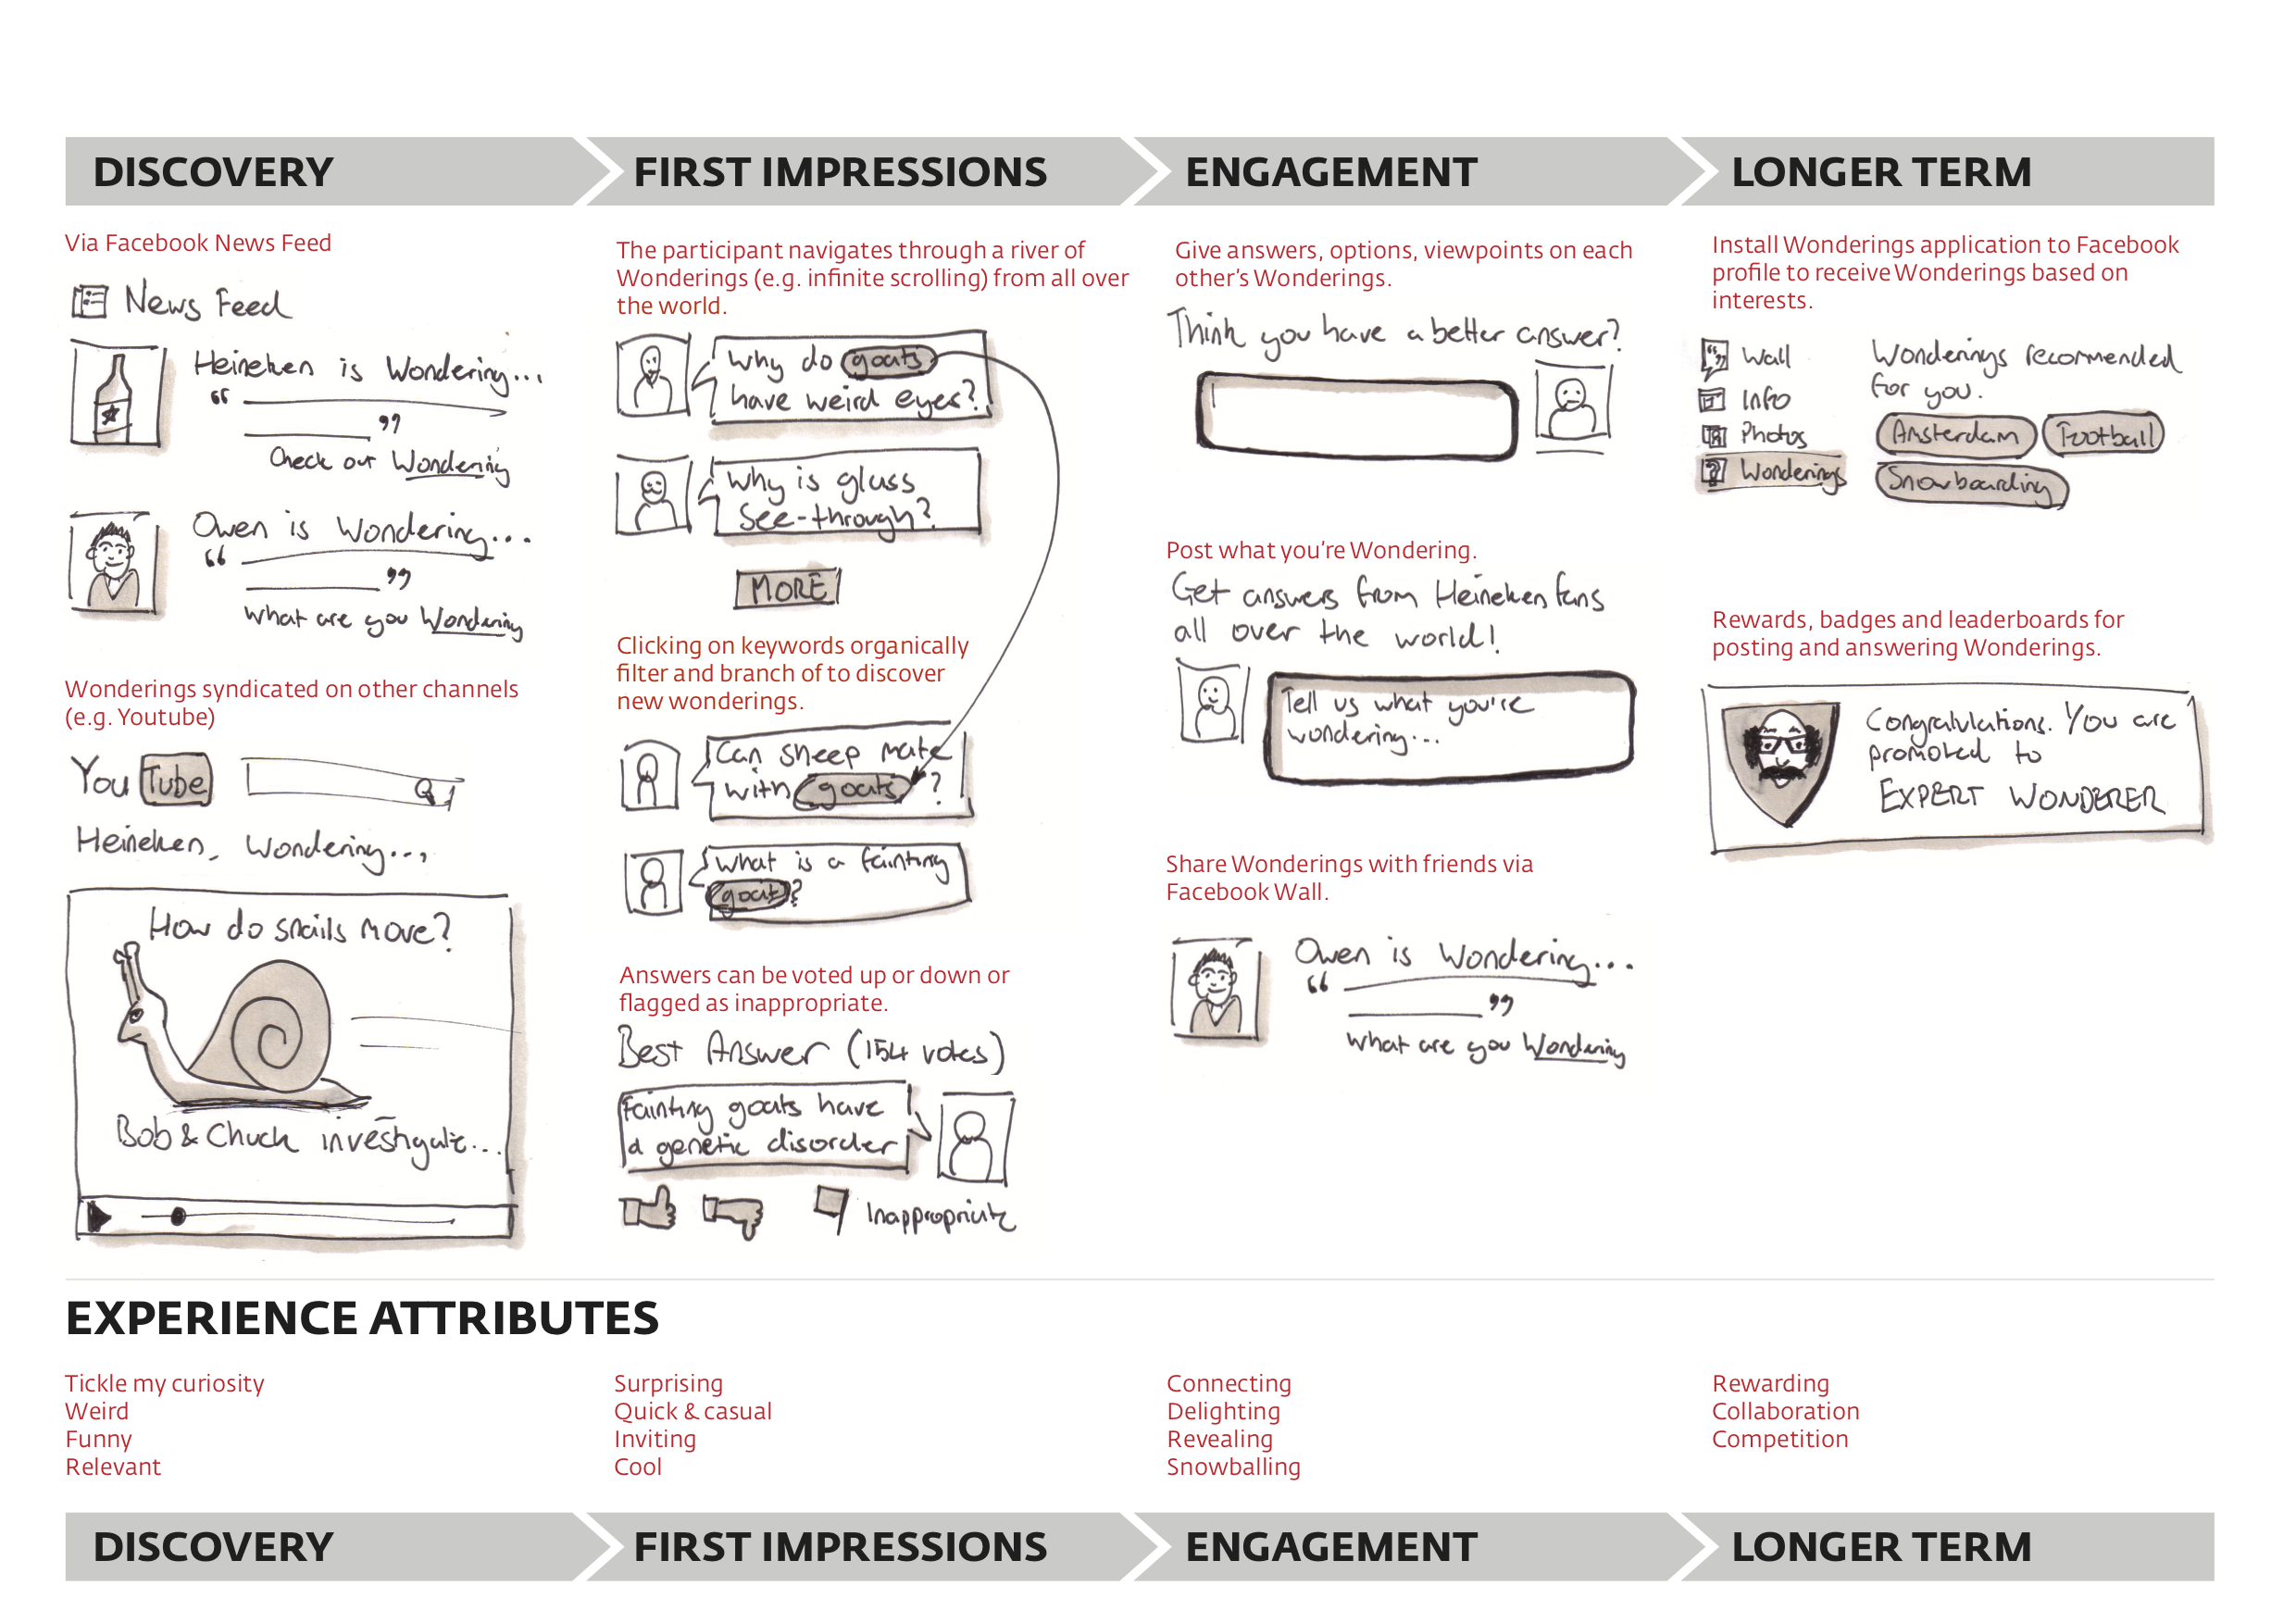 DISCOVERY
FIRST IMPRESSIONS
ENGAGEMENT
LONGER TERM
Via Facebook News Feed
News Feed
Heineken is Wondering...
“
”
Check out Wondering
Owen is Wondering...
“
”
What are you Wondering
Wonderings syndicated on other channels
(e.g. Youtube)
You Tube
Heineken, Wondering...
How do snails move?
Bob & Chuck investigate...
The participant navigates through a river of
Wonderings (e.g. infinite scrolling) from all over
the world.
Why do goats
have weird eyes?
Why is glass
see-through?
MORE
Clicking on keywords organically
filter and branch of to discover
new wonderings.
Can sheep mate
with goats?
What is a fainting
goat?
Answers can be voted up or down or
flagged as inappropriate.
Best Answer (154 votes)
Fainting goats have
a genetic disorder
Inappropriate
Give answers, options, viewpoints on each
other’s Wonderings.
Think you have a better answer?
Post what you’re Wondering.
Get answers from Heineken fans
all over the world!
Tell us what you're
wondering...
Share Wonderings with friends via
Facebook Wall.
Owen is Wondering...
“
”
What are you Wondering
Install Wonderings application to Facebook
profile to receive Wonderings based on
interests.
Wall
Info
Photos
Wonderings
Wonderings recommended
for you.
Amsterdam Football
Snowboarding
Rewards, badges and leaderboards for
posting and answering Wonderings.
Congratulations. You are
promoted to
EXPERT WONDERER
EXPERIENCE ATTRIBUTES
Tickle my curiosity
Weird
Funny
Relevant
Surprising
Quick & casual
Inviting
Cool
Connecting
Delighting
Revealing
Snowballing
Rewarding
Collaboration
Competition
DISCOVERY
FIRST IMPRESSIONS
ENGAGEMENT
LONGER TERM